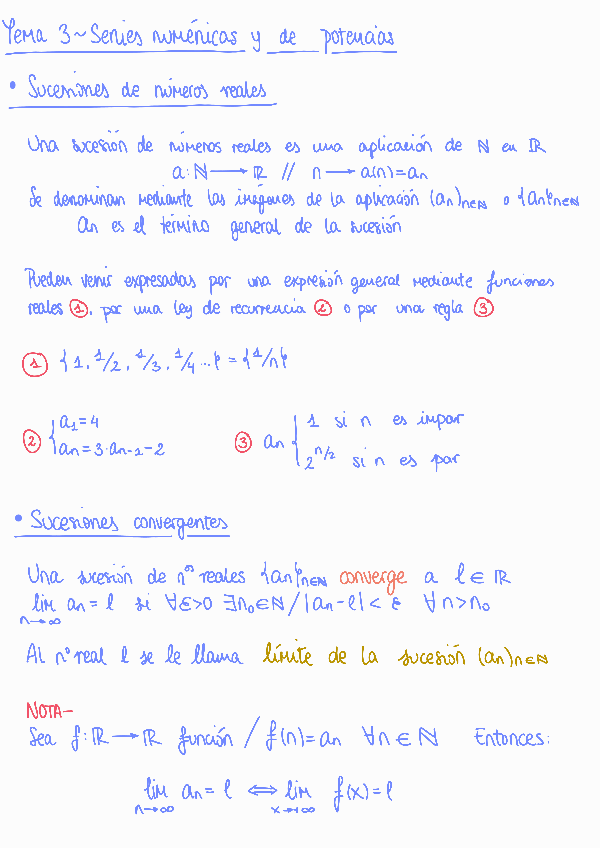 Tema 3 ~ Series numéricas y de potencias
• Sucesiones de números reales
Una sucesión de números reales es una aplicación de ℕ en ℝ
a: ℕ ⟶ ℝ // n ⟶ a(n) = an
Se denominan mediante las imágenes de la aplicación (an)n∈ℕ o {an}n∈ℕ
an es el término general de la sucesión
Pueden venir expresadas por una expresión general mediante funciones
reales ①, por una ley de recurrencia ② o por una regla ③
① {1, 1/2, 1/3, 1/4 ...} = {1/n}
② { a1 = 4
an = 3·an-1-2
③ an { 1 si n es impar
2^n/2 si n es par
• Sucesiones convergentes
Una sucesión de nos reales {an}n∈ℕ converge a l ∈ ℝ
lim n→∞ an = l si ∀ε>0 ∃n0∈ℕ / |an-l| < ε ∀n>n0
Al nº real l se le llama límite de la sucesión (an)n∈ℕ
NOTA-
Sea f: ℝ ⟶ ℝ función / f(n) = an ∀n ∈ ℕ Entonces:
lim n→∞ an = l ⟺ lim x→+∞ f(x) = l